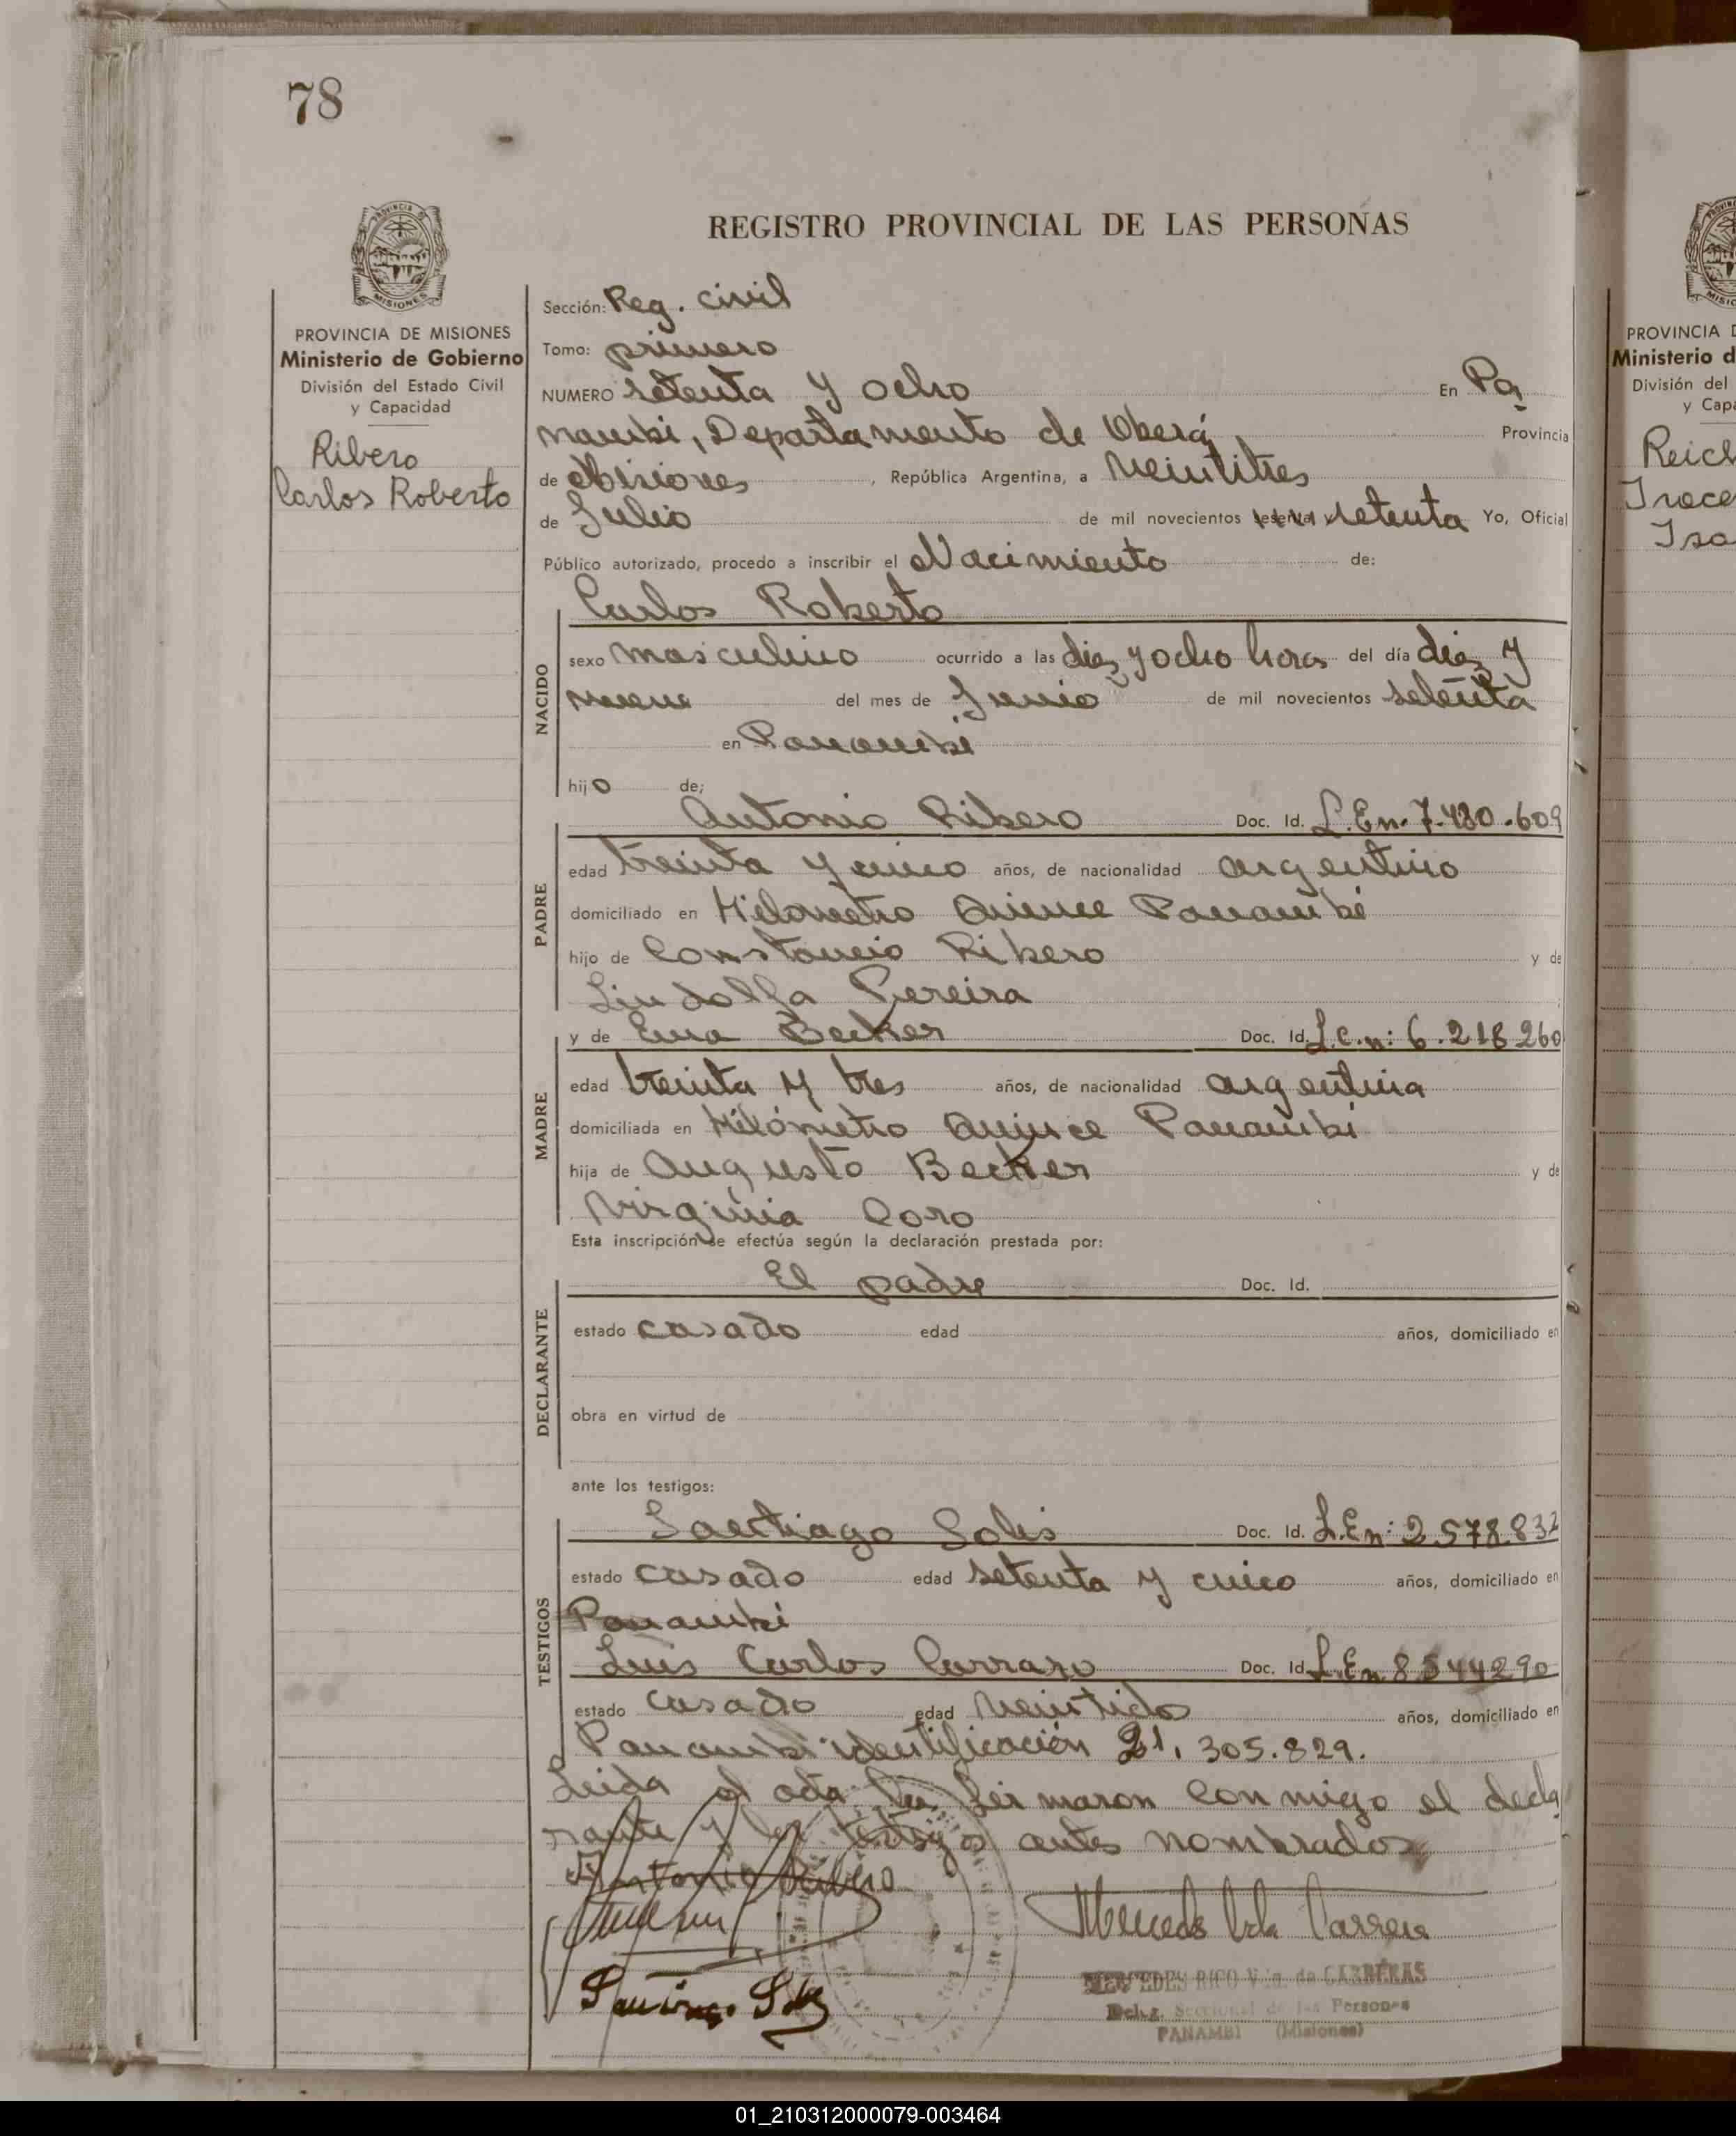 78
REGISTRO PROVINCIAL DE LAS PERSONAS
PROVINCIA DE MISIONES
Ministerio de Gobierno
División del Estado Civil
y Capacidad
Ribero
Carlos Roberto
Sección: Reg. civil
Tomo: primero
NUMERO setenta y ocho En Pa
nambi, Departamento de Oberá Provincia
de Misiones, República Argentina, a Veintitres
de Julio de mil novecientos sesenta setenta Yo, Oficial
Público autorizado, procedo a inscribir el Nacimiento de:
NACIDO
Carlos Roberto
sexo masculino ocurrido a las diez y ocho horas del día diez y
nueve del mes de Junio de mil novecientos setenta
en Panambi
hijo de;
PADRE
Antonio Ribero Doc. Id. L.En. 7.480.609
edad treinta y cinco años, de nacionalidad argentino
domiciliado en Kilometro Quince Panambi
hijo de Constancio Ribero y de
Lindolfa Pereira
MADRE
y de Ema Becker Doc. Id. L.C.n: 6.218.260
edad treinta y tres años, de nacionalidad argentina
domiciliada en Kilómetro Quince Panambi
hija de Augusto Becker y de
Virginia Coro
Esta inscripción se efectúa según la declaración prestada por:
DECLARANTE
El padre Doc. Id.
estado casado edad años, domiciliado en
obra en virtud de
ante los testigos:
TESTIGOS
Santiago Solis Doc. Id. L.En: 2.578.832
estado casado edad setenta y cinco años, domiciliado en
Panambi
Luis Carlos Carrazo Doc. Id. L.En 8544290
estado casado edad veintidos años, domiciliado en
Panambi identificación 21.305.829.
Leida el acta la firmaron conmigo el decla
rante y los testigos antes nombrados
Antonio Ribero
MERCEDES RICO Vda. de CARRERAS
Deleg. Seccional de las Personas
PANAMBI (Misiones)
PROVINCIA D
Ministerio d
División del
y Capa
Reicl
Irace
Isa
01_210312000079-003464